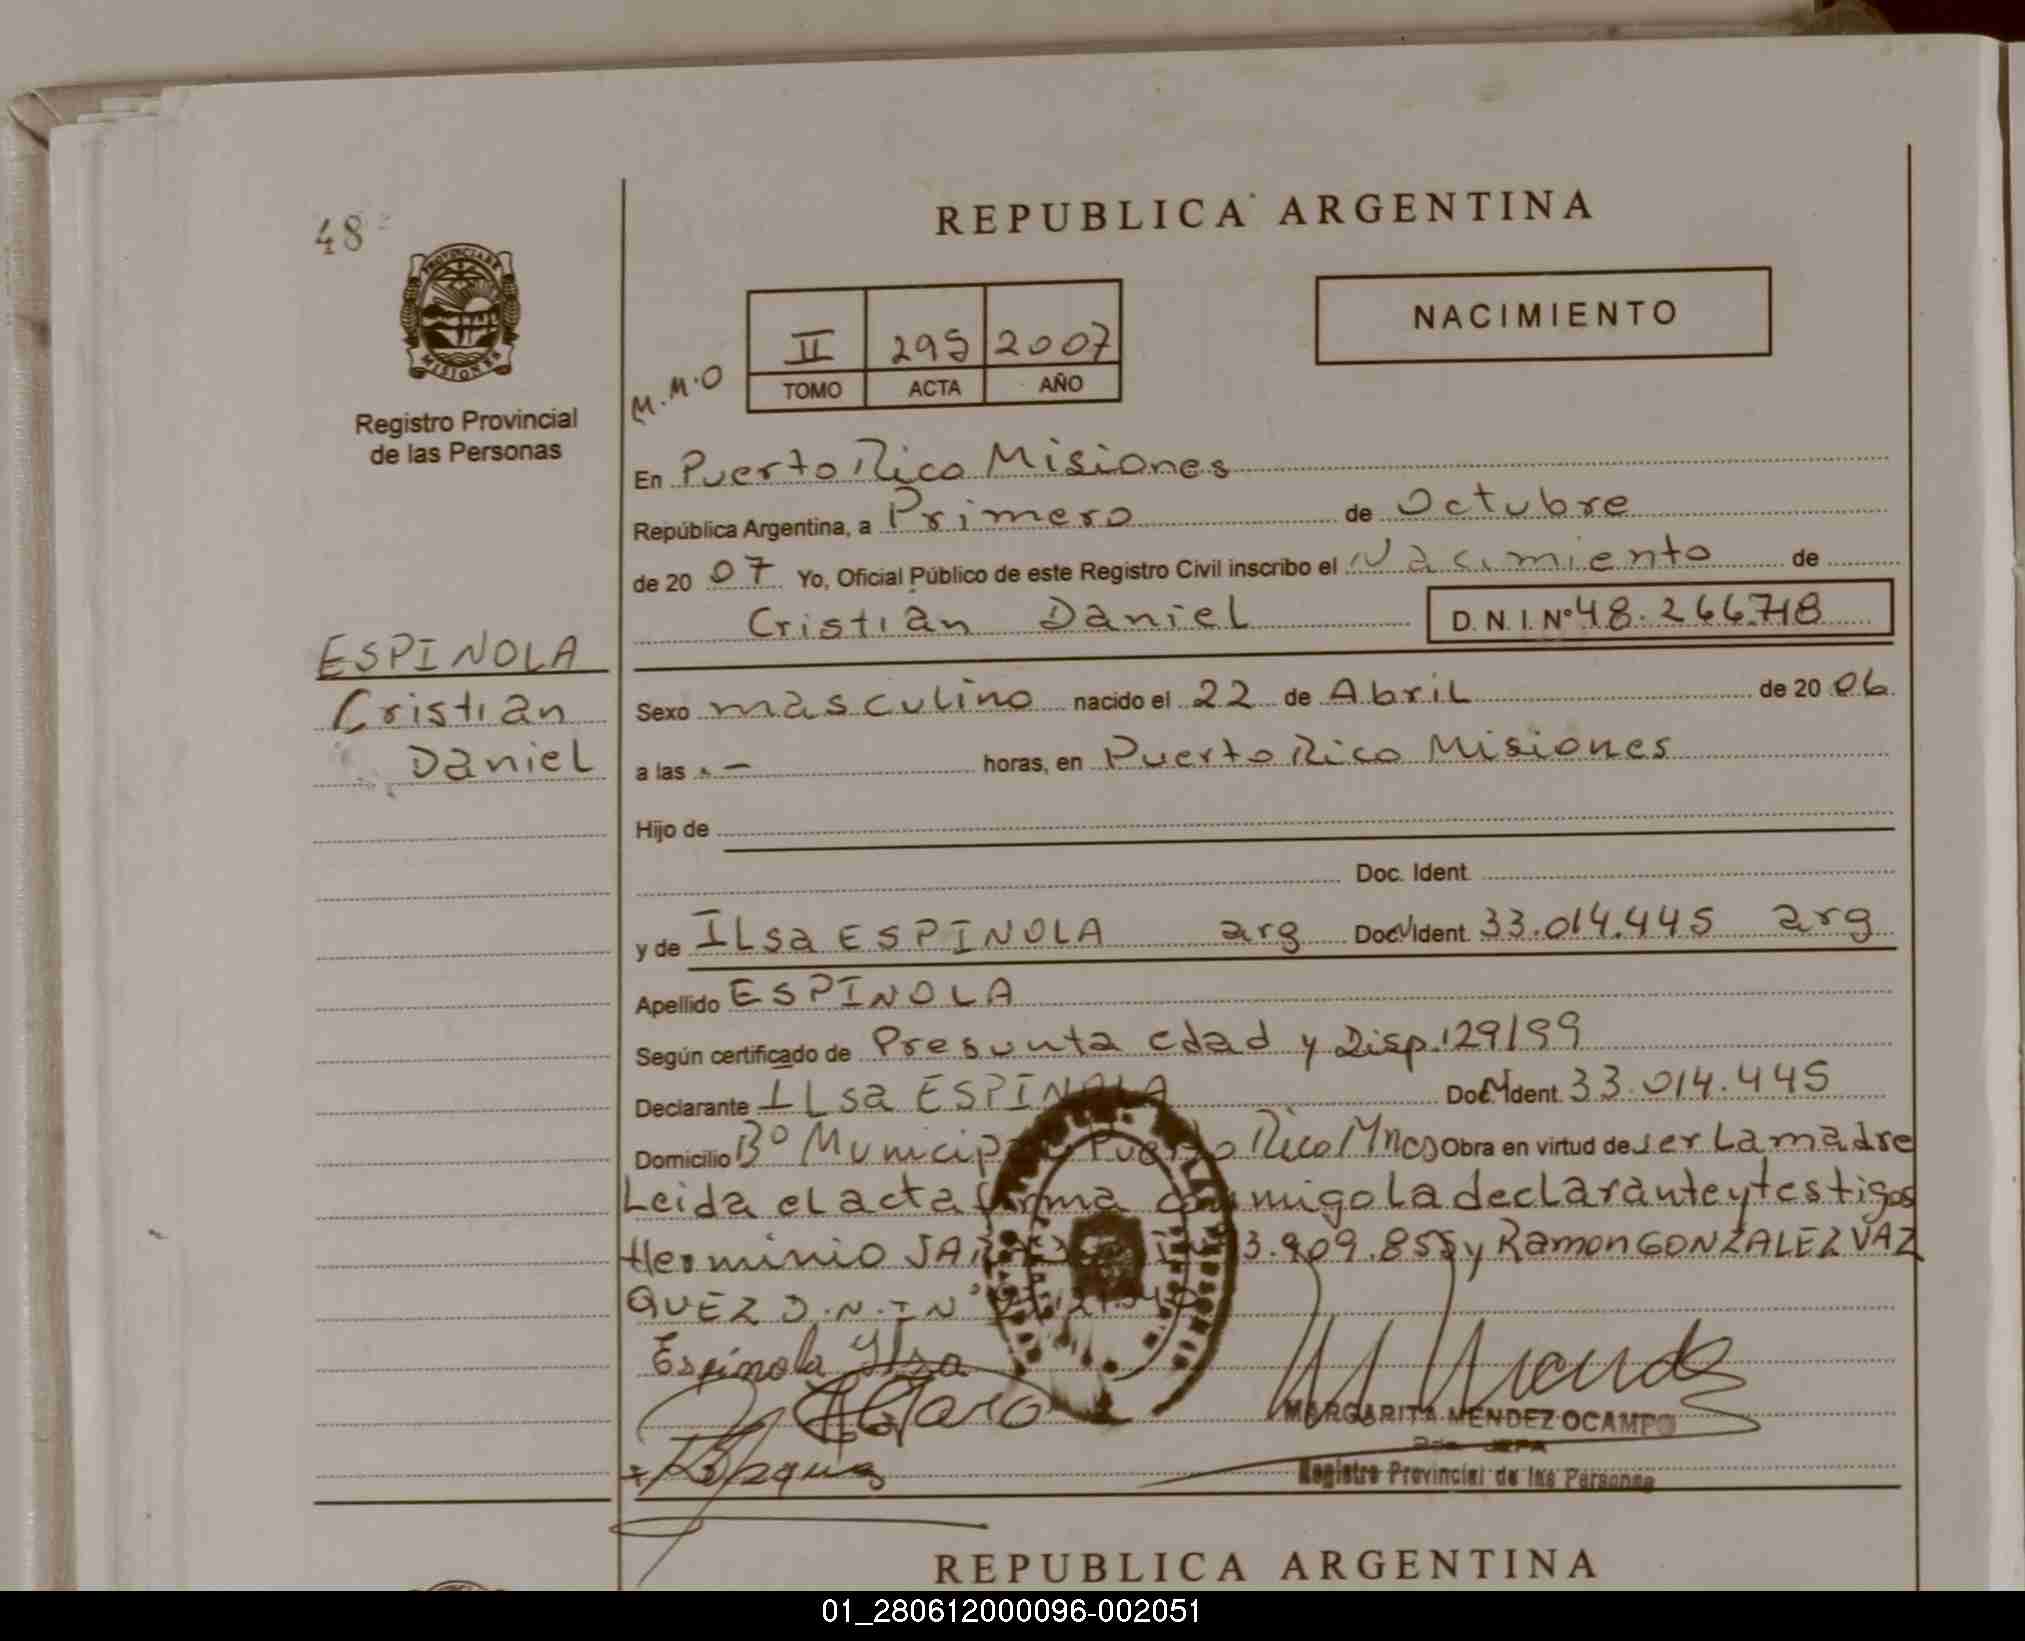 48
REPUBLICA ARGENTINA
PROVINCIA DE
MISIONES
Registro Provincial
de las Personas
M.M.O
II 295 2007
TOMO ACTA AÑO
NACIMIENTO
En Puerto Rico Misiones
República Argentina, a Primero de Octubre
de 20 07 Yo, Oficial Público de este Registro Civil inscribo el Nacimiento de
Cristian Daniel D. N. I. Nº 48.266.718
ESPINOLA
Cristian
Daniel
Sexo masculino nacido el 22 de Abril de 20 06
a las - horas, en Puerto Rico Misiones
Hijo de
Doc. Ident.
y de ILsa ESPINOLA arg Doc. Ident. 33.014.445 arg
Apellido ESPINOLA
Según certificado de Presunta edad y Disp. 129/99
Declarante ILsa ESPINOLA Doc. Ident. 33.014.445
Domicilio Bº Municipal Puerto Rico Mnes Obra en virtud de ser La madre
Leida el acta firma conmigo la declarante y testigos
Herminio 3.909.855 y Ramon GONZALEZ VAZ
QUEZ D.N.I Nº
Espinola Ilsa
MARGARITA MENDEZ OCAMPO
Registro Provincial de las Personas
REPUBLICA ARGENTINA
01_280612000096-002051